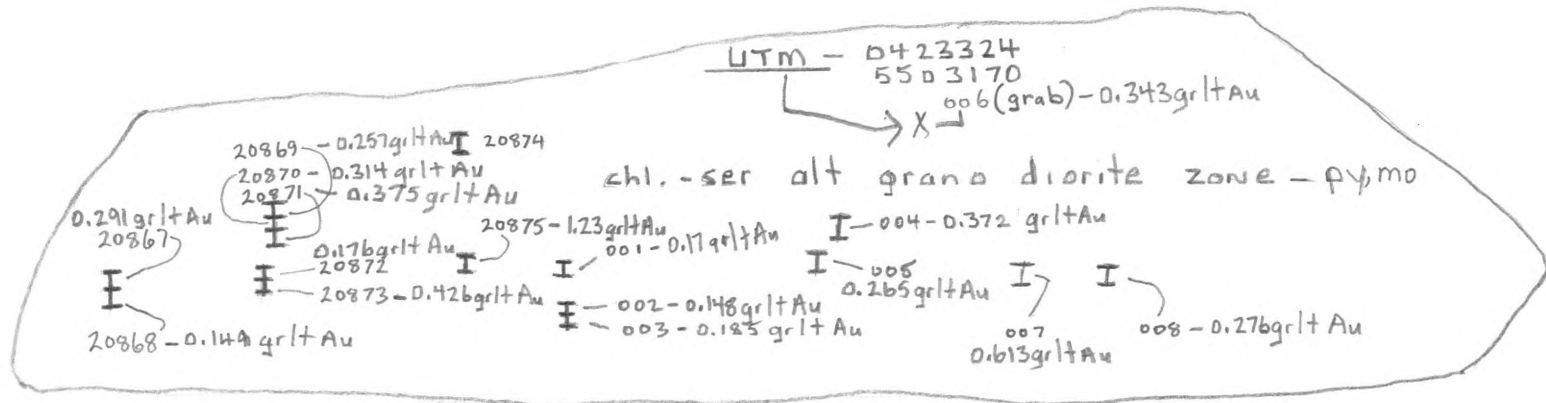 UTM - 0423324
5503170
006(grab)-0.343gr/t Au
20869-0.257gr/t Au
20874
20870-0.314gr/t Au
20871-0.375gr/t Au
chl.-ser alt grano diorite zone-py,mo
0.291gr/t Au
20867
20875-1.23gr/t Au
004-0.372 gr/t Au
0.176gr/t Au
20872
001-0.17gr/t Au
005
0.265gr/t Au
20873-0.426gr/t Au
002-0.148gr/t Au
003-0.185 gr/t Au
20868-0.149 gr/t Au
007
0.613gr/t Au
008-0.276gr/t Au